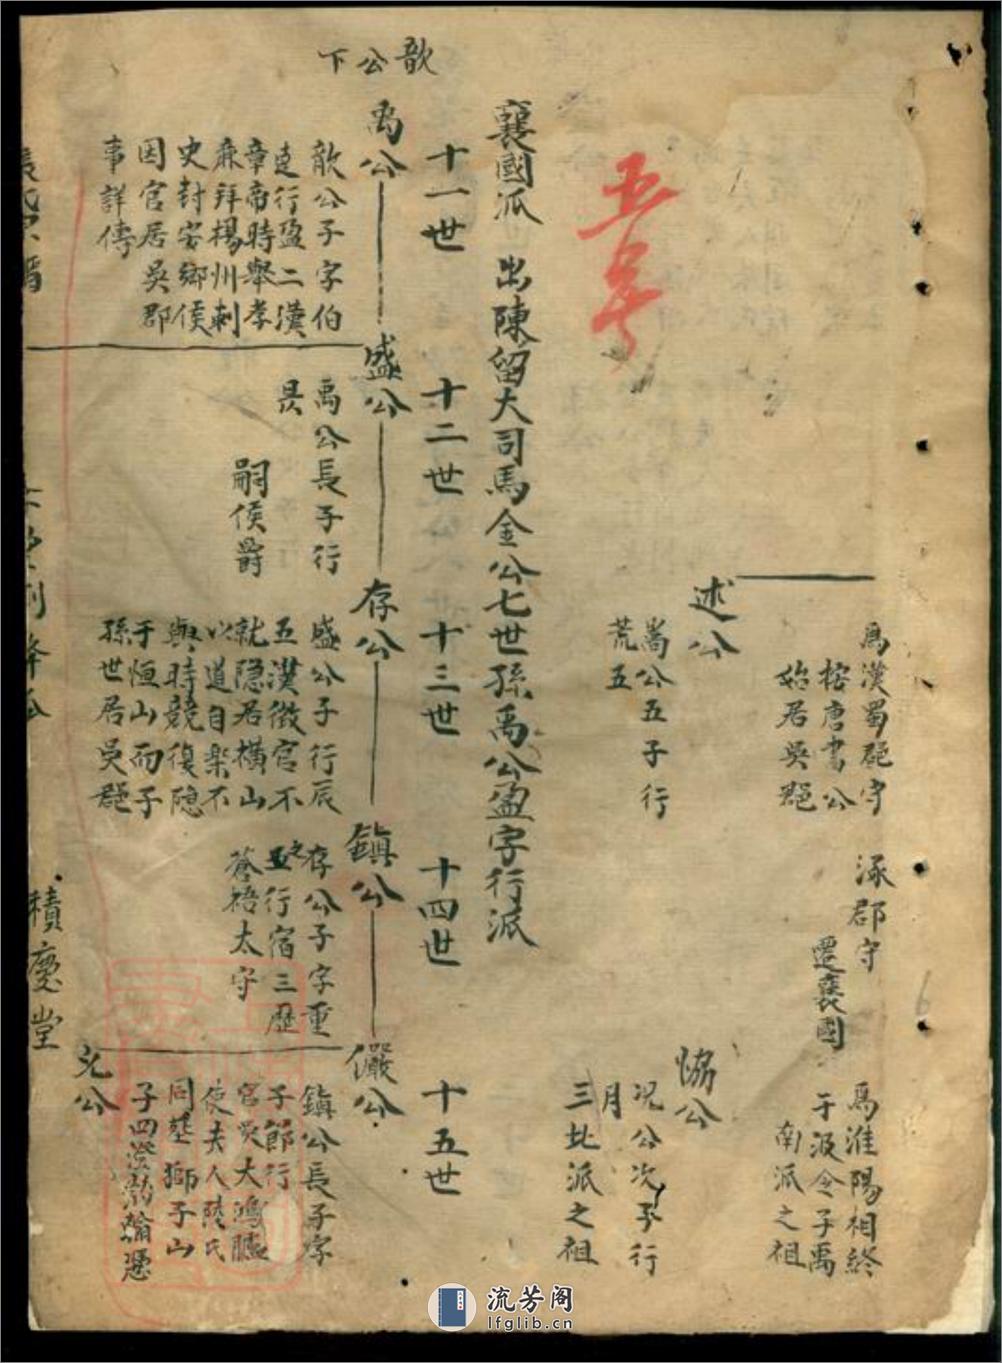 為漢蜀郡守
按唐書公
始居吳郡
述公
嵩公五子行
荒五
涿郡守
遷襄國
為淮陽相終
于汲令子禹
南派之祖
恊公
况公次子行
月
三北派之祖
五号
襄國派 出陳留大司馬金公七世孫禹公盈字行派
十一世
十二世
十三世
十四世
十五世
歆公下
禹公
歆公子字伯
達行盈二漢
章帝時舉孝
廉拜楊州刺
史封安鄉侯
因官居吳郡
事詳傳
盛公
禹公長子行
昃
嗣侯爵
存公
盛公子行辰
五漢徵官不
就隱居橫山
以道自樂不
與時競復隱
于恒山而子
孫世居吳郡
鎮公
存公子字重
之行宿三歷
蒼梧太守
儼公
鎮公長子字
子節行
官大鴻臚
使夫人陸氏
同塟獅子山
子四澄
允公
積慶堂
流芳阁
lfglib.cn